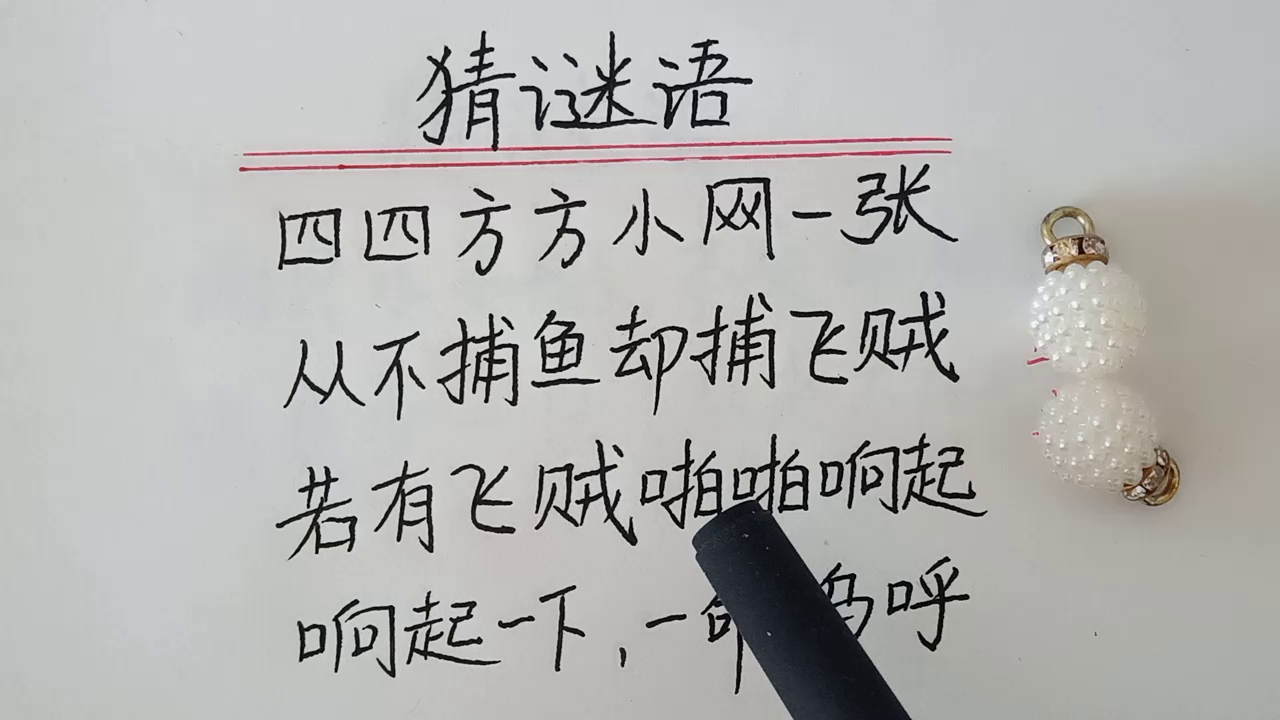 猜谜语
四四方方小网一张
从不捕鱼却捕飞贼
若有飞贼啪啪响起
响起一下,一命呜呼